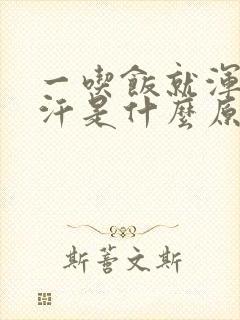 一喫飯就渾
汗是什麼原
斯蓍文斯